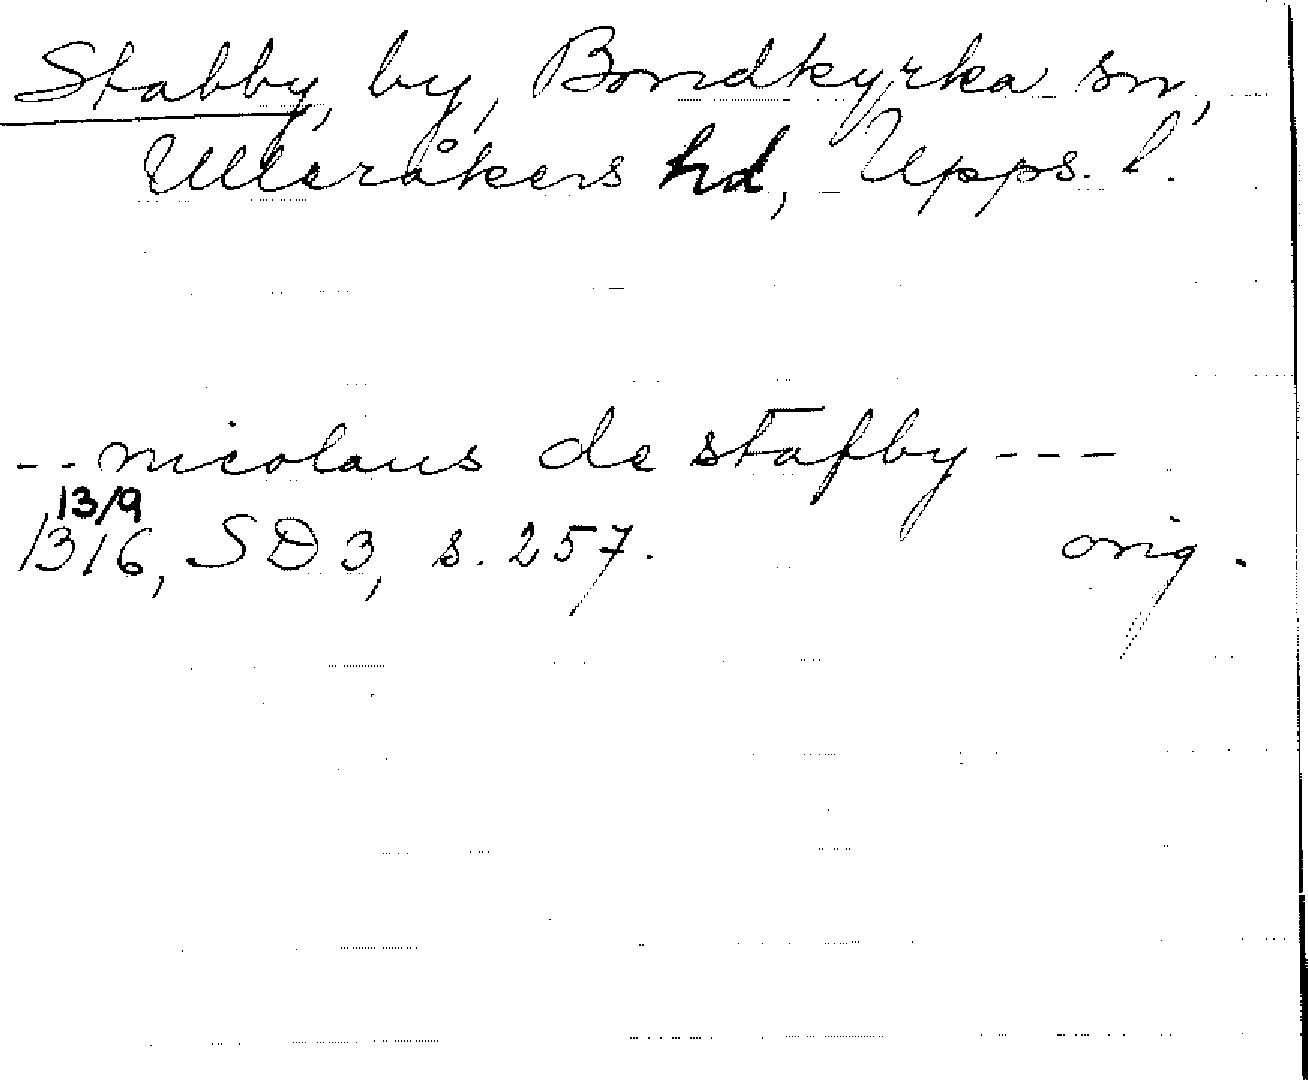 Stabby, by, Bondkyrka sn,
Ulleråkers hd, Upps. l.
-- nicolaus de stafby ---
13/9
1316, SD 3, s. 257. orig.